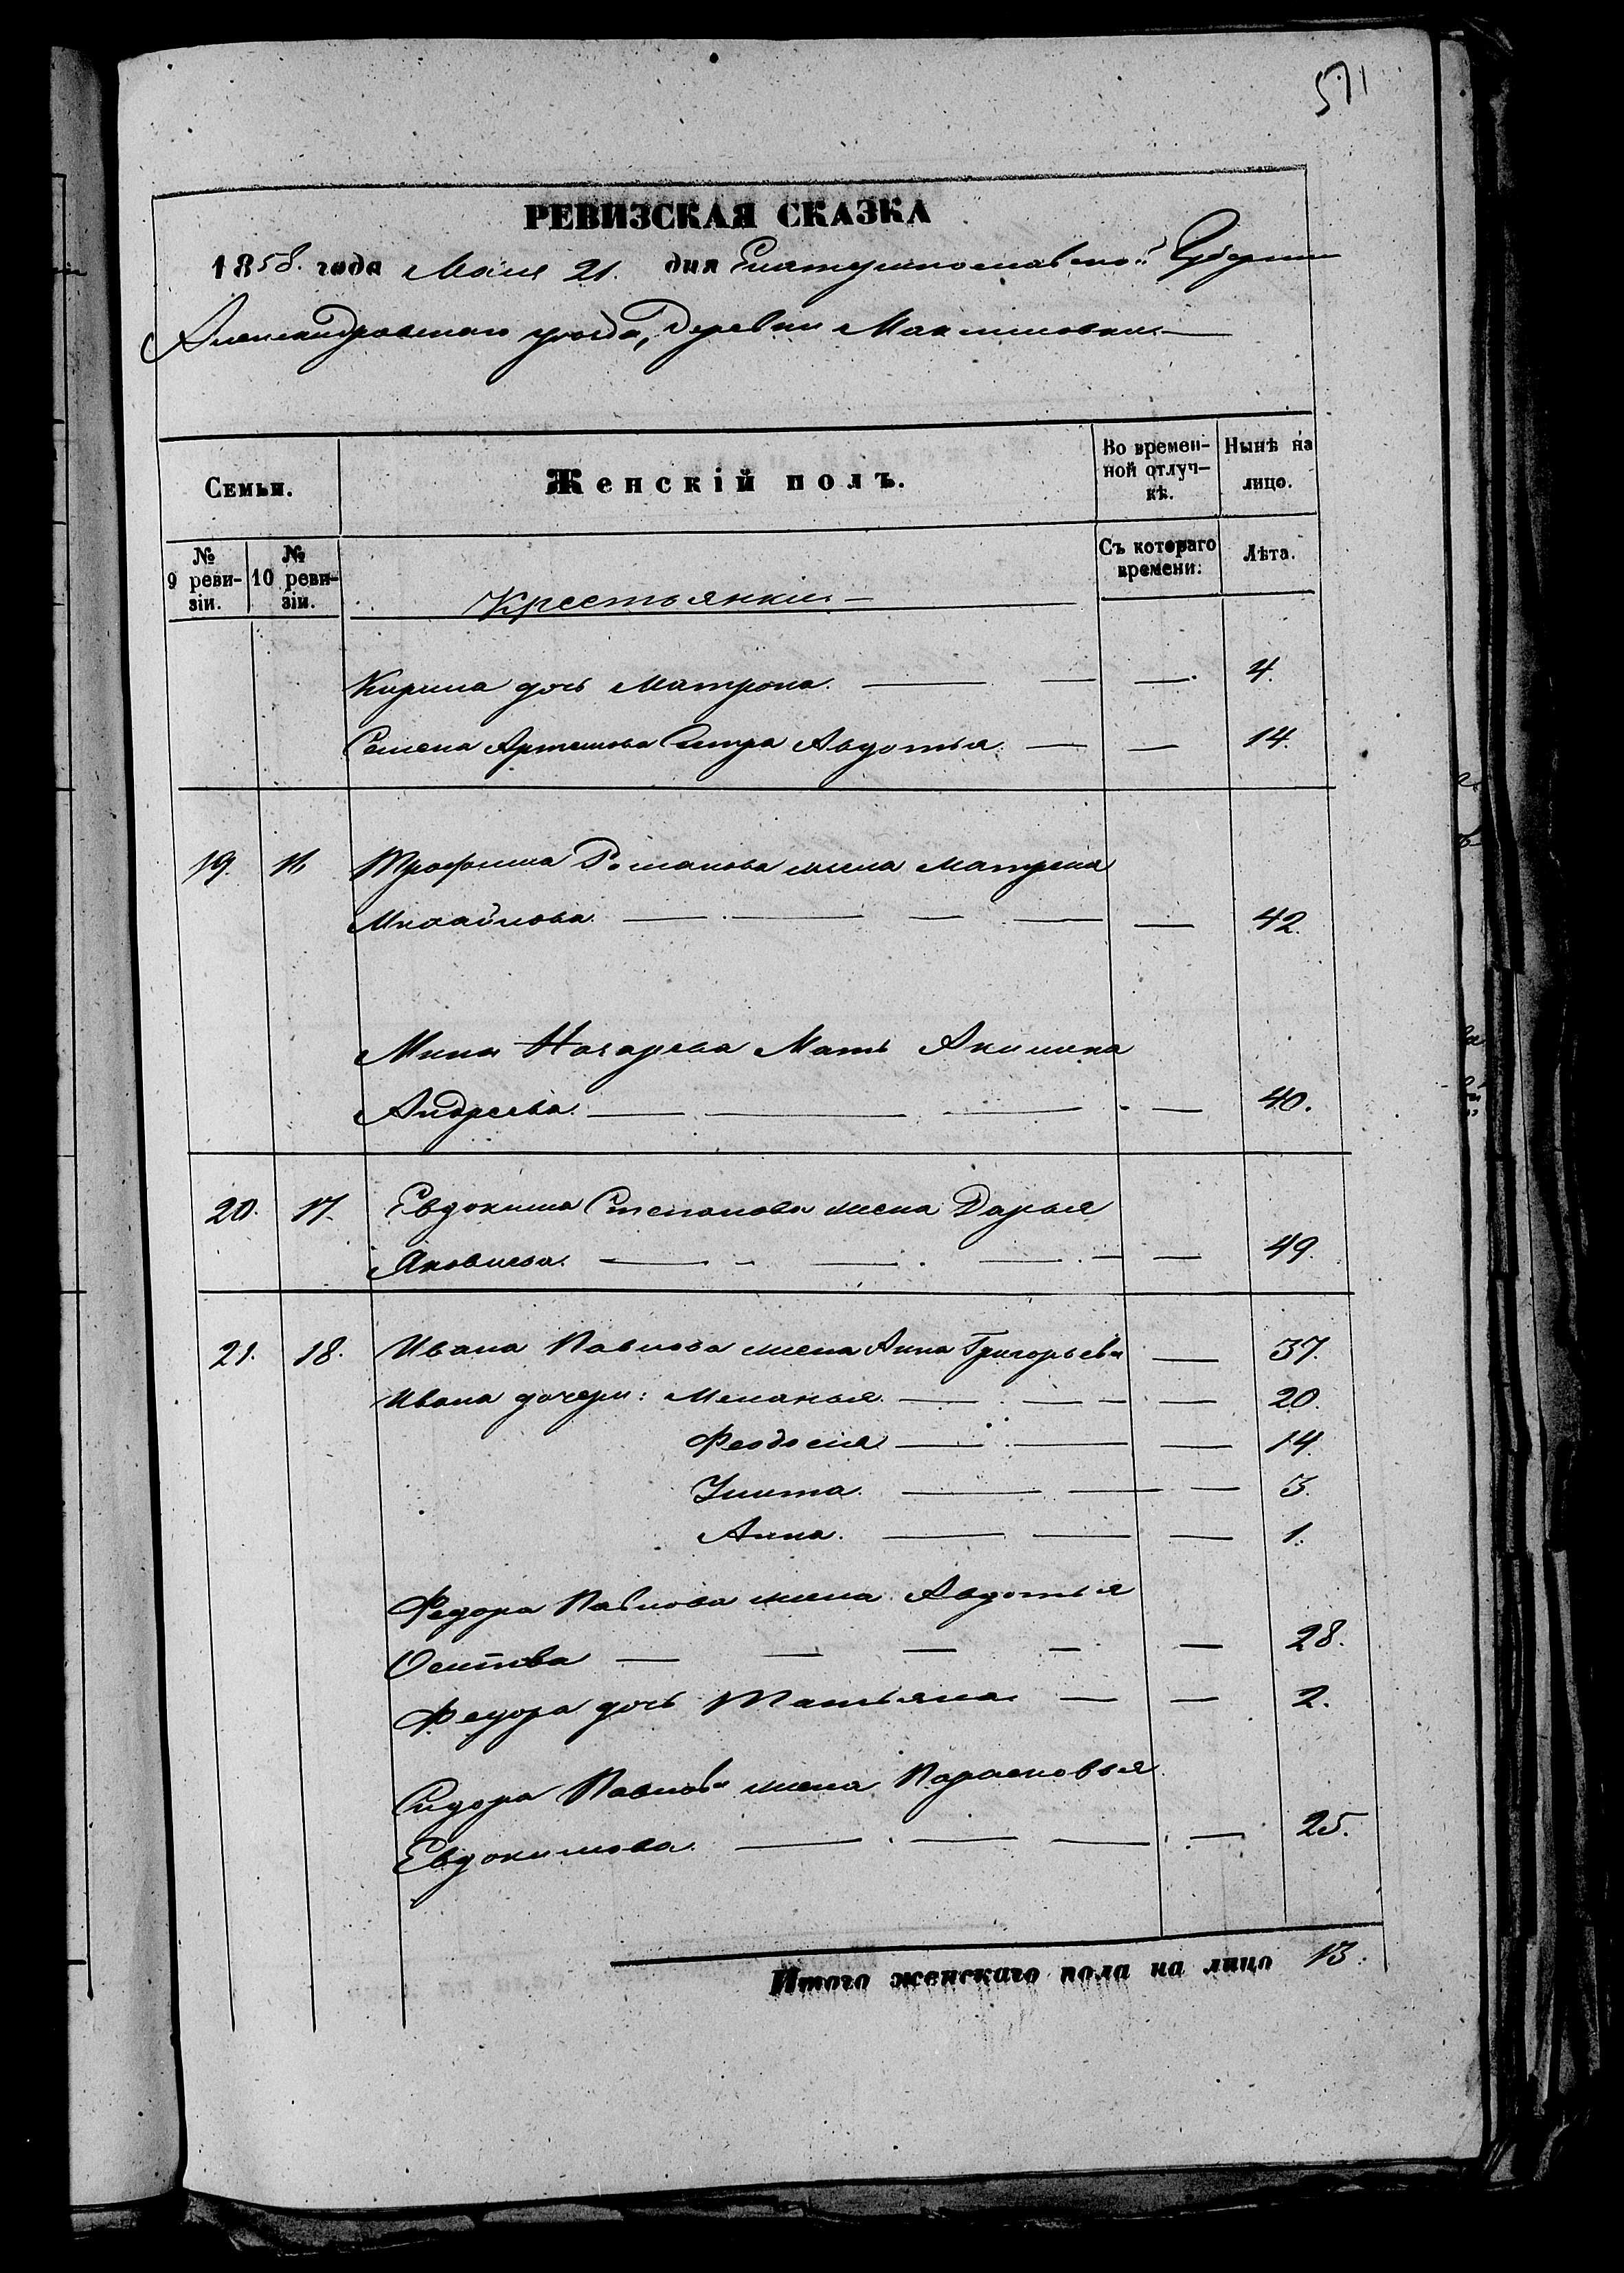 571
РЕВИЗСКАЯ СКАЗКА
1858. года Мая 21. дня Екатеринославской Губернии
Александровскаго уезда, Деревни Максимовки.
Семьи.
Женскій полъ.
Во времен-
ной отлуч-
кѣ.
Нынѣ на
лицо.
№
9 реви-
зіи.
№
10 реви-
зіи.
Съ котораго
времени:
Лѣта.
Крестьянки. —
Кирила дочь Матрона. — — —. 4.
Семена Артемова Сестра Авдотья. — — 14.
19. 16 Трофима Романова жена Матрена
Михайлова. — — — — — 42.
Мины Назарева Мать Акилина
Андреева. — — — — 40.
20. 17. Евдокима Степанова жена Дарья
Яковлева. — — — — — 49.
21. 18. Ивана Павлова жена Анна Григорьева — 37.
Ивана дочери: Меланья. — — — — 20.
Феодосия — — — 14.
Улита. — — — 3.
Анна. — — — 1.
Федора Павлова жена Авдотья
Осипова — — — — — 28.
Федора дочь Татьяна. — — 2.
Сидора Павлова жена Парасковья
Евдокимова. — — — — 25.
Итого женскаго пола на лицо 13.